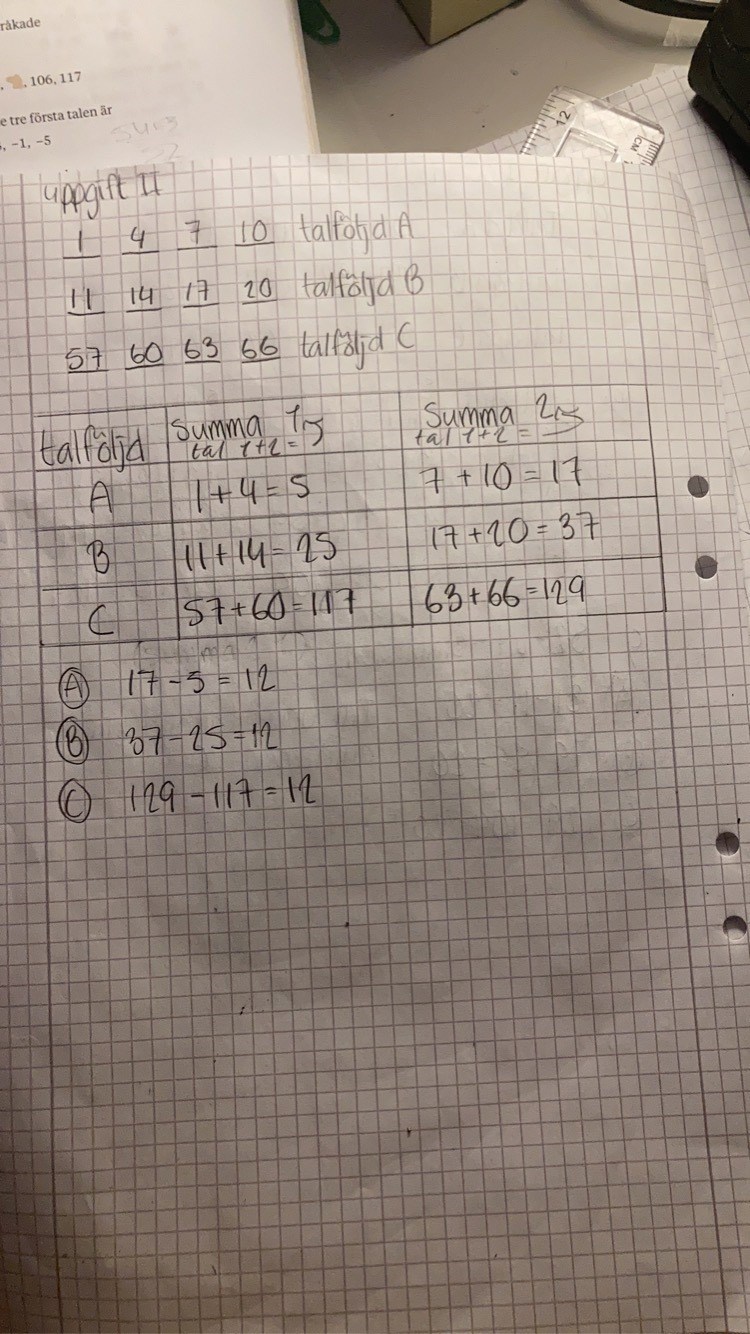 råkade
, 106, 117
e tre första talen är
, -1, -5
uppgift II
1 4 7 10 talföljd A
11 14 17 20 talföljd B
57 60 63 66 talföljd C
talföljd
Summa 1
tal 1+2 =
Summa 2
tal 1+2 =
A 1+4=5 7+10=17
B 11+14=25 17+20=37
C 57+60=117 63+66=129
A 17-5=12
B 37-25=12
C 129-117=12
12
CM